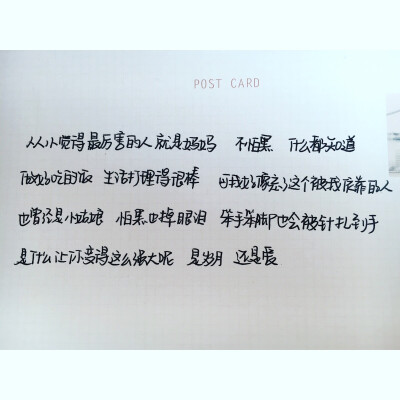 POST CARD
从小觉得最厉害的人就是妈妈 不怕黑 什么都知道
做好吃的饭 生活打理得很棒 可我好像忘了这个被我依靠的人
也曾还是小姑娘 怕黑也掉眼泪 笨手笨脚也会被针扎到手
是什么让你变得这么强大呢 是岁月 还是爱